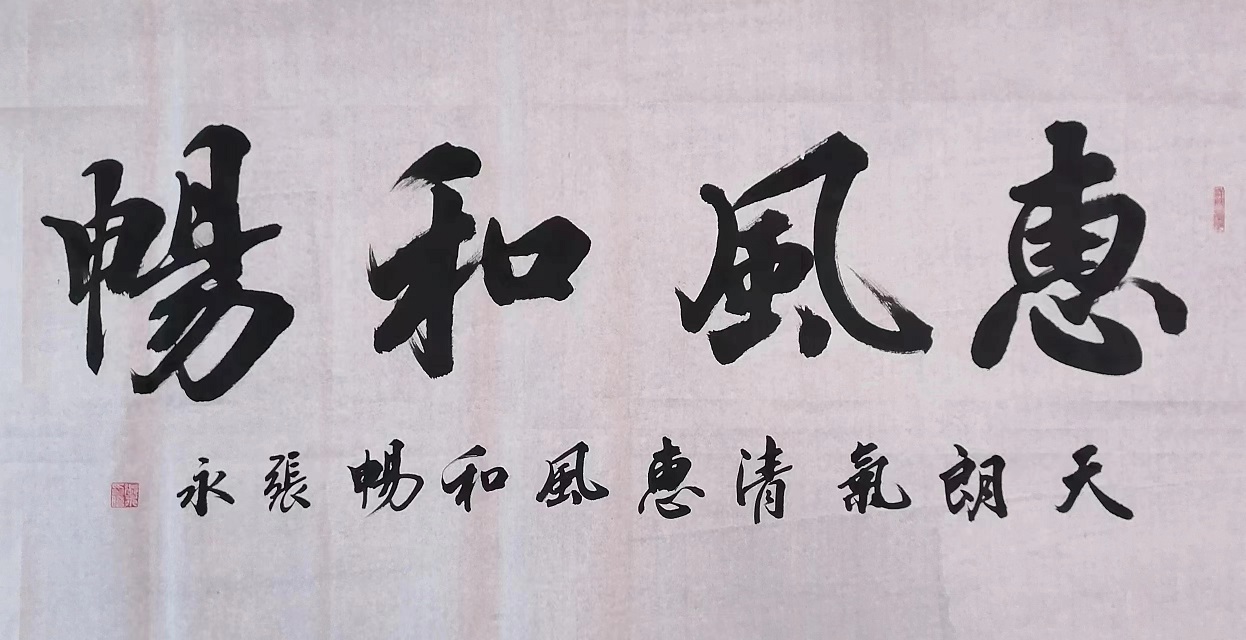 惠風和暢
天朗氣清惠風和暢張永